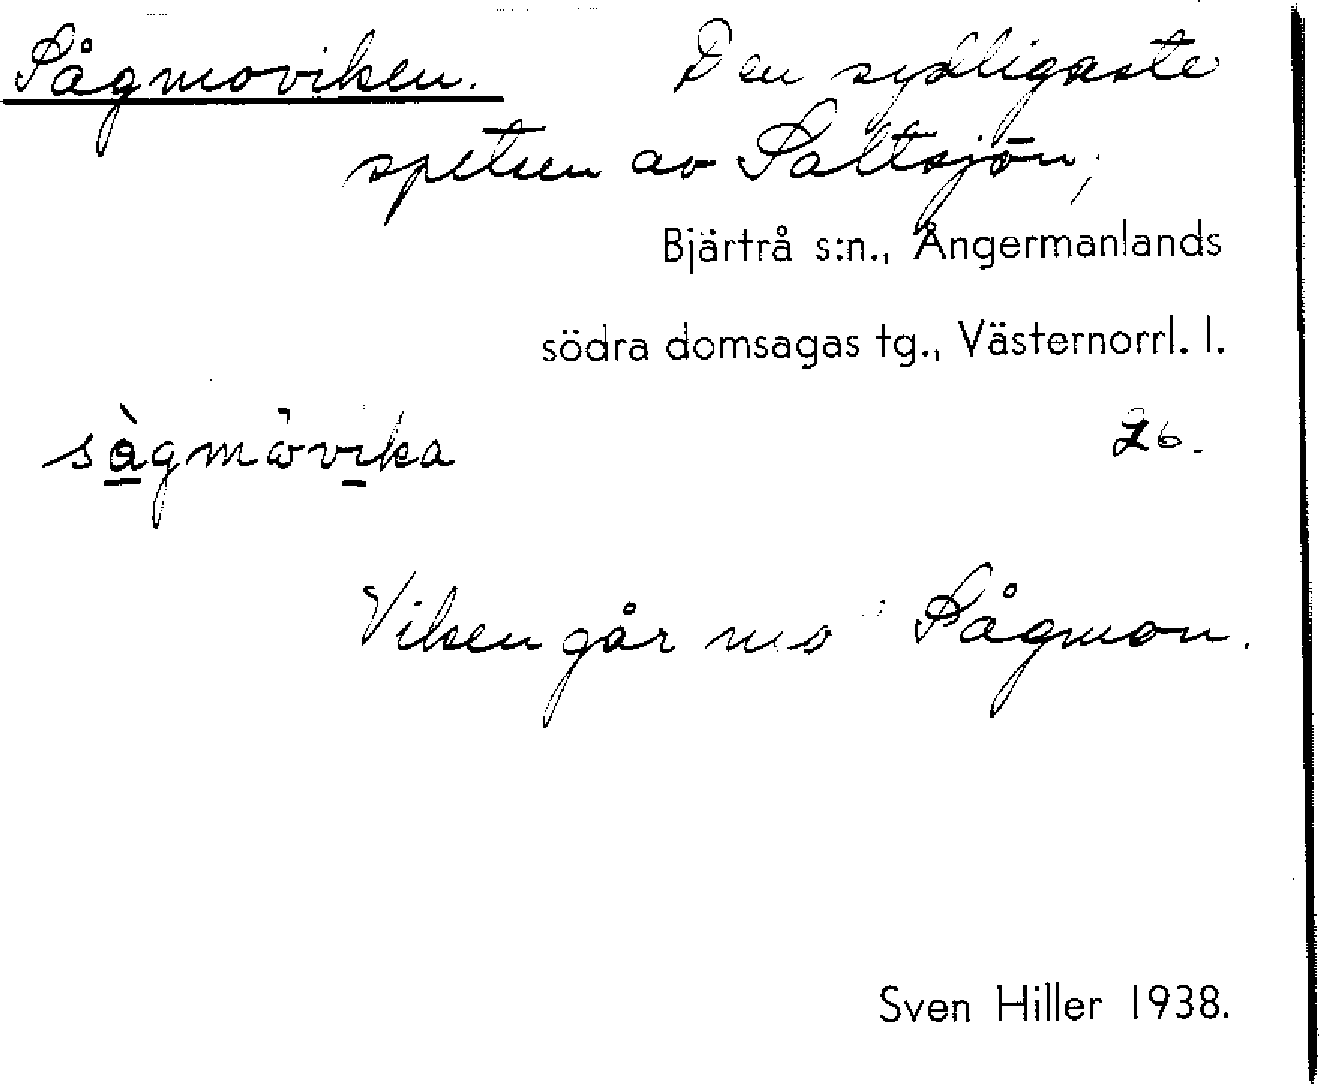 Sågmoviken. Den sydligaste
spetsen av Saltsjön,
Bjärtrå s:n., Ångermanlands
södra domsagas tg., Västernorrl. l.
sàgmövika 26.
Viken går mot Sågmon.
Sven Hiller 1938.